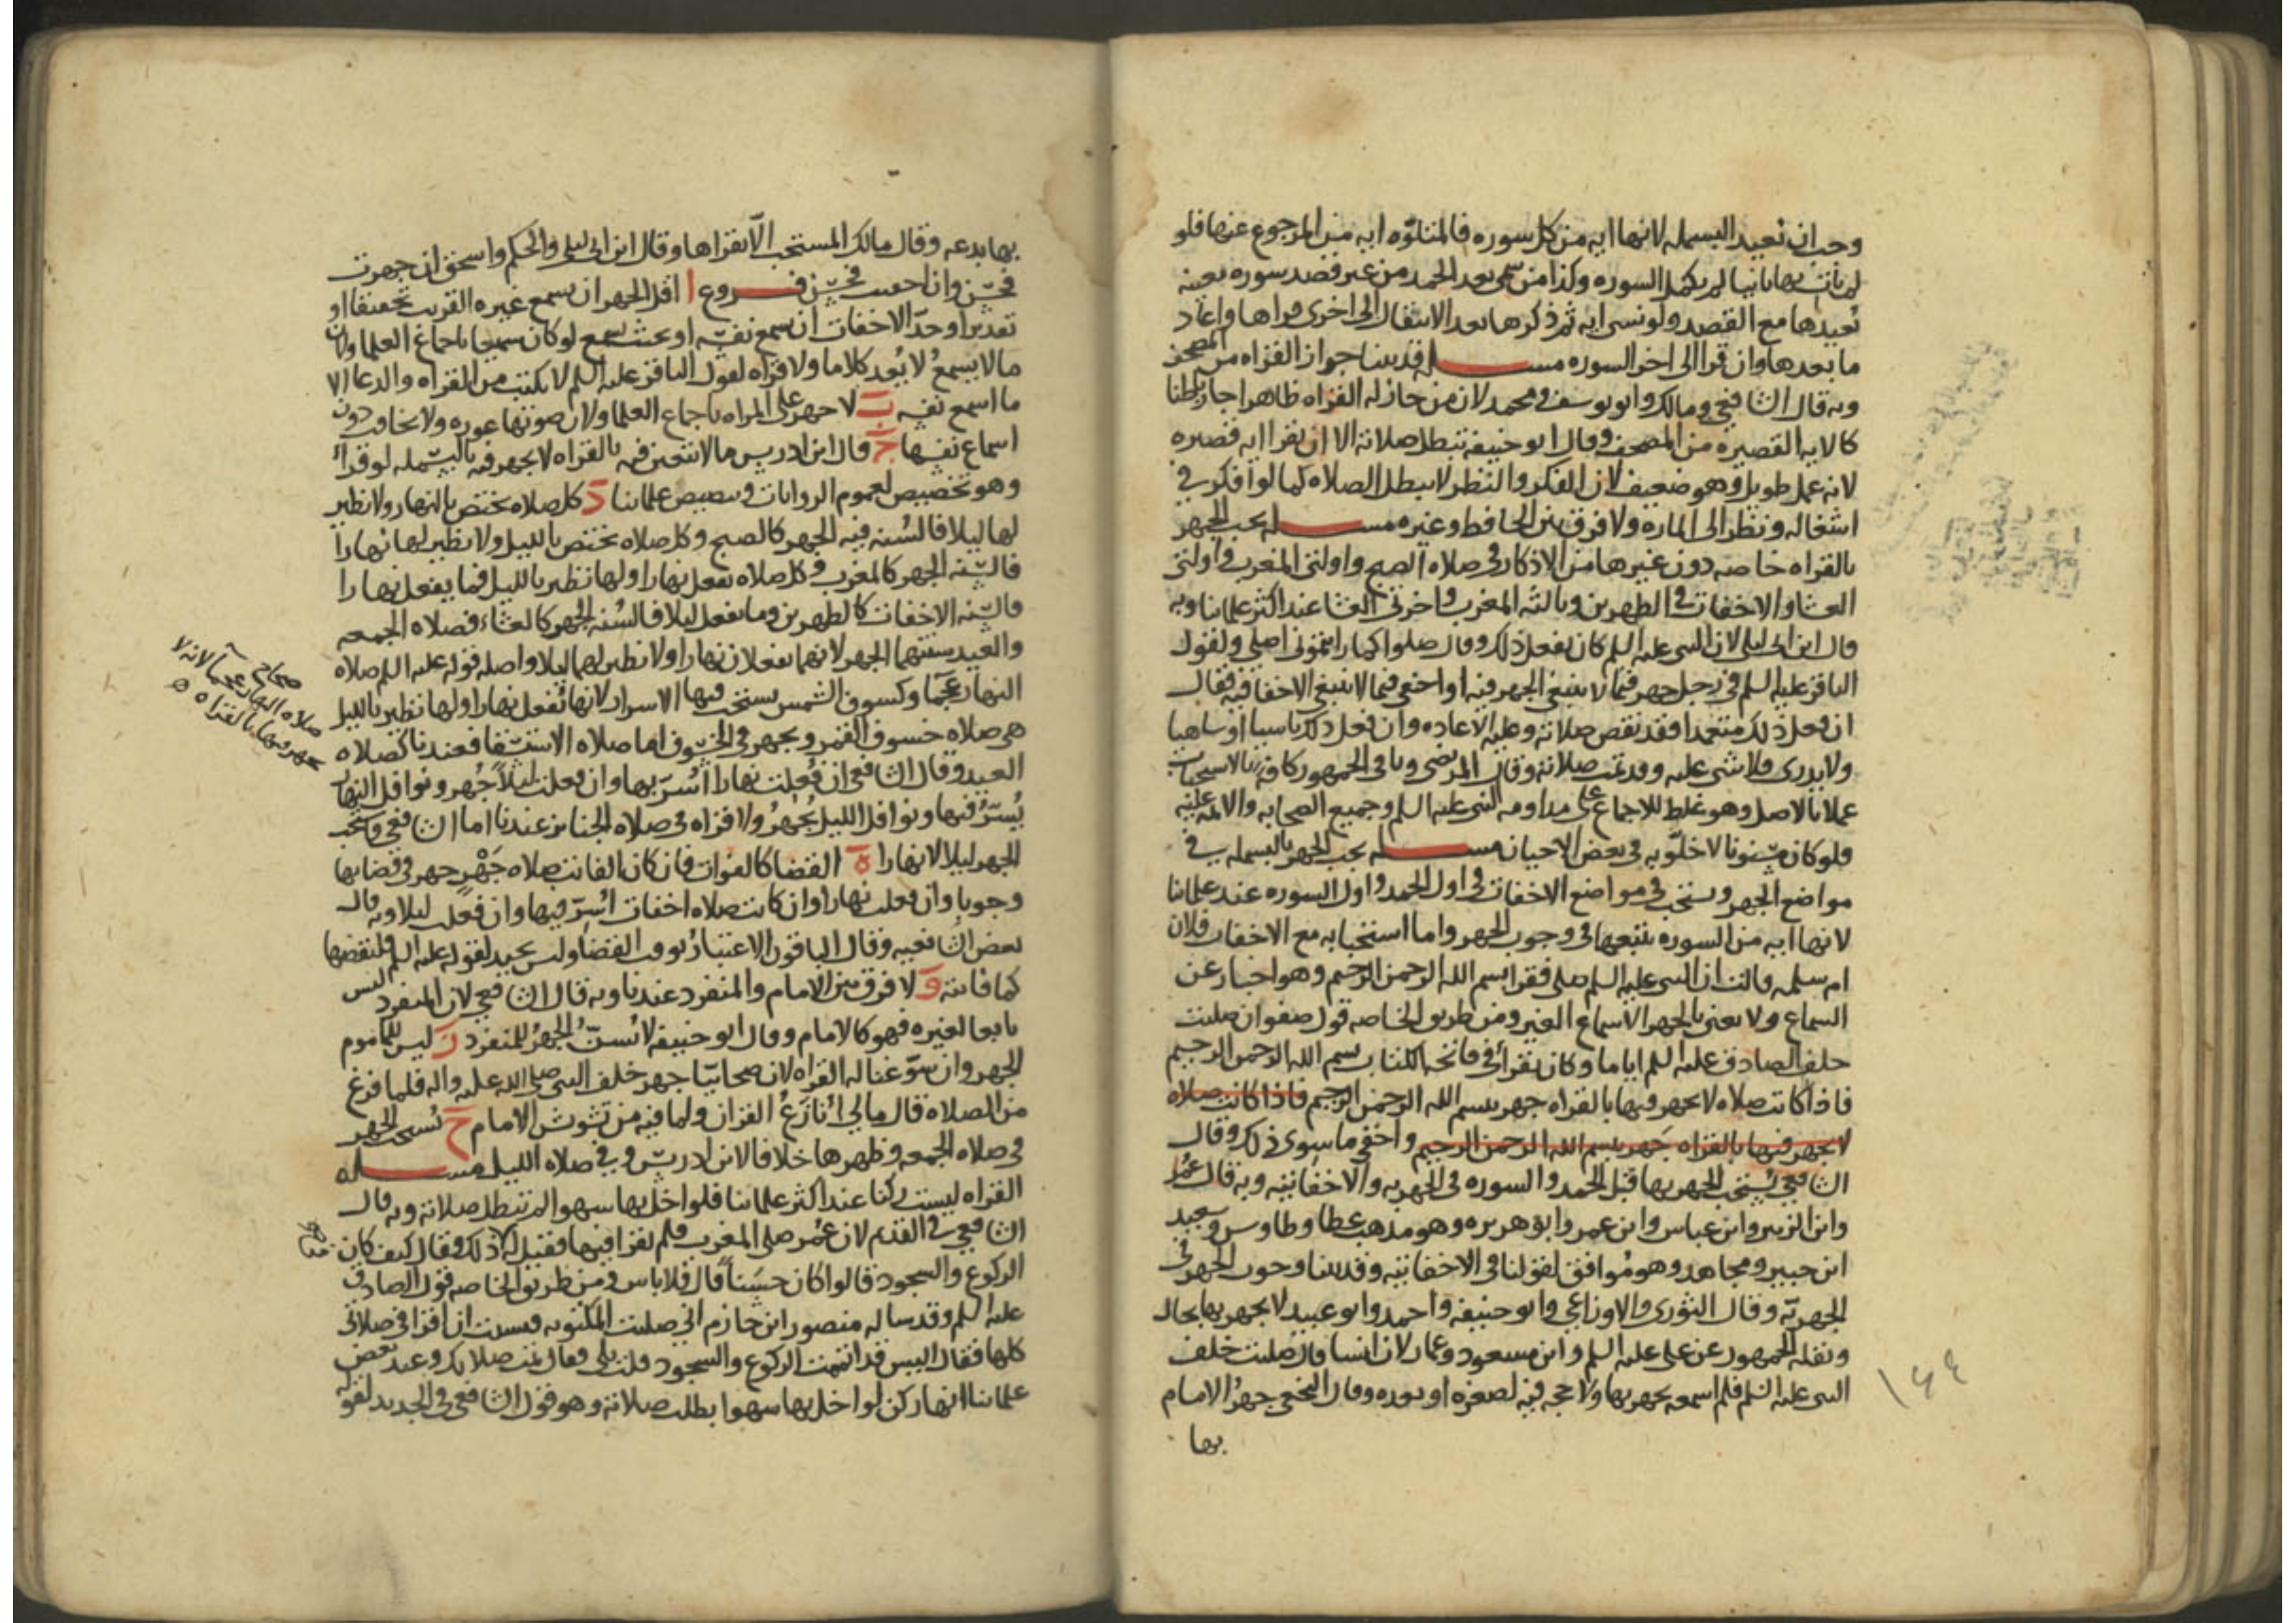 وجب ان تعيد البسمله لانها ايه من كل سوره فالمتلوّه ايه من المرجوع عنها فلو
لم يات بها ثانيا لم يكمل السوره وكذا من سمى بعد الحمد من غير قصد سوره بعينه
تعيدها مع القصد ولو نسى ايه ثم ذكرها بعد الانتقال الى اخرى قراها واعاد
ما بعدها وان قرا الى اخر السوره مسله قد بينا جواز القراه من المصحف
وبه قال الشافعى ومالك وابو يوسف ومحمد لان من جاز له القراه ظاهرا جاز باطنا
كالايه القصيره من المصحف وقال ابو حنيفه تبطل صلاته الا ان يقرا ايه قصيره
لانه عمل طويل وهو ضعيف لان الفكر والنظر لا يبطل الصلاه كما لو افكر فى
اشغاله ونظر الى الماره ولا فرق بين الحافظ وغيره مسله يجب الجهر
بالقراه خاصه دون غيرها من الاذكار فى صلاه الصبح واولتى المغرب واولتى
العشا والاخفات فى الظهرين وثالثه المغرب واخرتى العشا عند اكثر علمائنا وبه
قال ابن ابى ليلى لان النبى عليه السلم كان يفعل ذلك وقال صلوا كما رايتمونى اصلى ولقول
الباقر عليه السلم فى رجل جهر فيما لا ينبغى الجهر فيه او اخفى فيما لا ينبغى الاخفا فيه فقال
ان فعل ذلك متعمدا فقد نقص صلاته وعليه الاعاده وان فعل ذلك ناسيا او ساهيا
ولا يدرى فلا شى عليه وقد تمت صلاته وقال المرتضى وباقى الجمهور كافه بالاستحباب
عملا بالاصل وهو غلط للاجماع على مداومه النبى عليه السلم وجميع الصحابه والائمه عليه
فلو كان مسنونا لاخلّو به فى بعض الاحيان مسله يجب الجهر بالبسمله فى
مواضع الجهر ويستحب فى مواضع الاخفات فى اول الحمد واول السوره عند علمائنا
لانها ايه من السوره تتبعها فى وجوب الجهر واما استحبابه مع الاخفات فلان
ام سلمه قالت ان النبى عليه السلم صلى فقرا بسم الله الرحمن الرحيم وهو اخبار عن
السماع ولا يعنى بالجهر الا سماع الغير ومن طريق الخاصه قول صفوان صليت
خلف الصادق عليه السلم اياما وكان يقرا فى فاتحه الكتاب بسم الله الرحمن الرحيم
فاذا كانت صلاه لا يجهر فيها بالقراه جهر ببسم الله الرحمن الرحيم فاذا كانت صلاه
لا يجهر فيها بالقراه جهر ببسم الله الرحمن الرحيم واخفى ما سوى ذلك وقال
الشافعى يُستحب الجهر بها قبل الحمد والسوره فى الجهريه والاخفاتيه وبه قال عُمر
وابن الزبير وابن عباس وابن عمر وابو هريره وهو مذهب عطا وطاوس وسعيد
ابن جبير ومجاهد وهو مُوافق لقولنا فى الاخفاتيه وقد بينا وجوب الجهر فى
الجهريّه وقال الثورى والاوزاعى وابو حنيفه واحمد وابو عبيد لا يجهر بها بحال
ونقله الجمهور عن على عليه السلم وابن مسعود وعمار لان انسا قال صليت خلف
النبى عليه السلم فلم اسمعه يجهر بها ولا حجه فيه لصغره او بعده وقال النخعى جهرُ الامام
بها
١٤٤
بها بدعه وقال مالك المستحب الاّ يقراها وقال ابن ابى ليلى والحكم واسحق ان جهرت
فحسن وان اخفيت فحسن فروع ا اقل الجهر ان يسمع غيره القريب تحقيقا او
تقديرا وحدّ الاخفات ان يسمع نفسه او بحيث يسمع لو كان سميعا باجماع العلما ولان
ما لا يسمعُ لا يُعد كلاما ولا قراه لقول الباقر عليه السلم لا يكتب من القراه والدعا الا
ما اسمع نفسه ب لا جهر على المراه باجماع العلما ولان صوتها عوره ولا تخافت دون
اسماع نفسها ج قال ابن ادريس ما لا تتعين فيه بالقراه لا يجهر فيه بالبسمله لو قراَ
وهو تخصيص لعموم الروايات وتنصيص علمائنا د كل صلاه تختص بالنهار ولا نظير
لها ليلا فالسُنه فيه الجهر كالصبح وكل صلاه تختص بالليل ولا نظير لها نهارا
فالسنه الجهر كالمغرب وكل صلاه تفعل نهارا ولها نظير بالليل فما يفعل نهارا
فالسّنه الاخفات كالظهرين وما يفعل ليلا فالسُنه الجُهر كالعشاء فصلاه الجمعه
والعيد سنتهما الجهر لانهما يفعلان نهارا ولا نظير لهما ليلا واصله قوله عليه السلم صلاه
النهار عجما وكسوف الشمس يستحب فيها الاسرار لانها تُفعل نهارا ولها نظير بالليل
هى صلاه خسوف القمر ويجهر فى الخسوف اما صلاه الاستسقا فعندنا كصلاه
العيد وقال الشافعى ان فُعلت نهارا اُسُرّ بها وان فعلت ليلاً جُهر ونوافل النهار
يُسرّ فيها ونوافل الليل يُجهرُ ولا قراه فى صلاه الجنائز عندنا اما الشافعى ويستحب
الجهر ليلا لا نهارا ه القضا كالفوات فان كان الفائت صلاه جَهْرٍ جهر فى قضائها
وجوبا وان فعلت نهارا وان كانت صلاه اخفات اسَرّ فيها وان فعلت ليلا وبه قال
بعض الشافعيه وقال الباقون الاعتبارُ بوقت القضا وليس بجيد لقوله عليه السلم فليقضها
كما فاتته و لا فرق بين الامام والمنفرد عندنا وبه قال الشافعى لان المنفرد ليس
تابعا لغيره فهو كالامام وقال ابو حنيفه لا يُسنّ الجهرُ للمنفرد ز ليس للماموم
الجهر وان سوّغنا له القراه لان صحابيّا جهر خلف النبى صلى الله عليه واله فلما فرغ
من الصلاه قال مالي اُنازَعُ القران ولما فيه من تشوش الامام ح يُستحب الجهر
فى صلاه الجمعه وظهرها خلافا لابن ادريس وفى صلاه الليل مسله
القراه ليست ركنا عند اكثر علمائنا فلو اخل بها سهوا لم تبطل صلاته وبه قال
الشافعى فى القديم لان عُمر صلى المغرب فلم يقرا فيها فقيل له ذلك وقال كيف كان
الركوع والسجود قالوا كان حسَناً قال فلا باس ومن طريق الخاصه قول الصادق
عليه السلم وقد ساله منصور ابن حازم انى صليت المكتوبه فنسيت ان اقرا فى صلاتى
كلها فقال اليس قد اتممت الركوع والسجود قلت بلى فقال تمت صلاتك وعند بعض
علمائنا انها ركن لو اخل بها سهوا بطلت صلاته وهو قول الشافعى فى الجديد لقوله
صحاح
صلاه النهار عجمآ لانه لا
يجهر فيها بالقراه